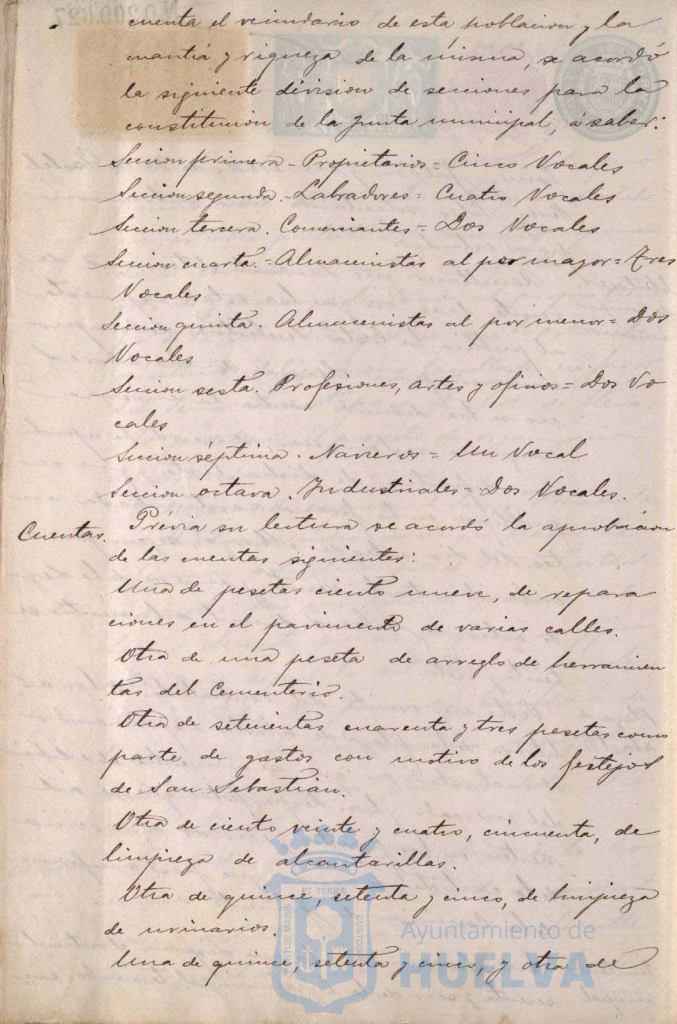 cuenta el vecindario de esta poblacion y la
cuantia y riqueza de la misma, se acordó
la siguiente division de secciones para la
constitucion de la Junta municipal, á saber:
Seccion primera - Propietarios = Cinco Vocales
Seccion segunda. - Labradores = Cuatro Vocales
Seccion tercera. Comerciantes = Dos Vocales
Seccion cuarta. = Almacenistas al por mayor = Tres
Vocales
Seccion quinta. Almacenistas al por menor = Dos
Vocales
Seccion sesta. Profesiones, artes y oficios = Dos Vo
cales
Seccion séptima. Navieros = Un Vocal
Seccion octava. Industriales = Dos Vocales.
Cuentas. Prévia su lectura se acordó la aprobacion
de las cuentas siguientes:
Una de pesetas ciento nueve, de repara
ciones en el pavimento de varias calles.
Otra de una peseta de arreglo de herramien
tas del Cementerio.
Otra de setecientas cuarenta y tres pesetas como
parte de gastos con motivo de los festejos
de San Sebastian.
Otra de ciento veinte y cuatro, cincuenta, de
limpieza de alcantarillas.
Otra de quince, setenta y cinco, de limpieza
de urinarios.
Una de quince, setenta y cinco, y otra de
Ayuntamiento de
HUELVA